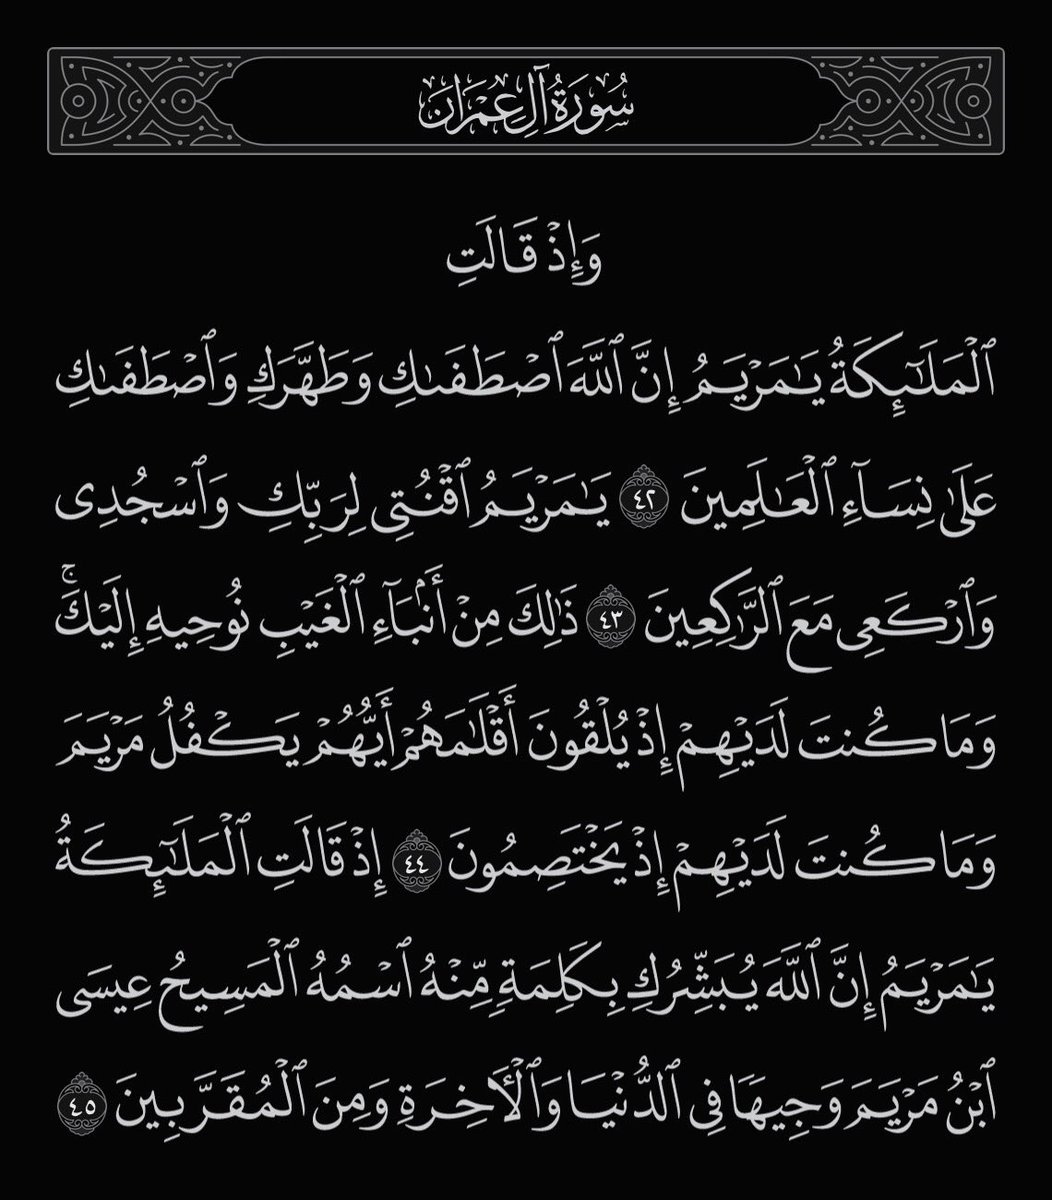 سُورَةُ آلِ عِمْرَانَ
وَإِذْ قَالَتِ
ٱلْمَلَـٰٓئِكَةُ يَـٰمَرْيَمُ إِنَّ ٱللَّهَ ٱصْطَفَىٰكِ وَطَهَّرَكِ وَٱصْطَفَىٰكِ
عَلَىٰ نِسَآءِ ٱلْعَـٰلَمِينَ ٤٢ يَـٰمَرْيَمُ ٱقْنُتِى لِرَبِّكِ وَٱسْجُدِى
وَٱرْكَعِى مَعَ ٱلرَّٰكِعِينَ ٤٣ ذَٰلِكَ مِنْ أَنۢبَآءِ ٱلْغَيْبِ نُوحِيهِ إِلَيْكَ ۚ
وَمَا كُنتَ لَدَيْهِمْ إِذْ يُلْقُونَ أَقْلَـٰمَهُمْ أَيُّهُمْ يَكْفُلُ مَرْيَمَ
وَمَا كُنتَ لَدَيْهِمْ إِذْ يَخْتَصِمُونَ ٤٤ إِذْ قَالَتِ ٱلْمَلَـٰٓئِكَةُ
يَـٰمَرْيَمُ إِنَّ ٱللَّهَ يُبَشِّرُكِ بِكَلِمَةٍ مِّنْهُ ٱسْمُهُ ٱلْمَسِيحُ عِيسَى
ٱبْنُ مَرْيَمَ وَجِيهًا فِى ٱلدُّنْيَا وَٱلْـَٔاخِرَةِ وَمِنَ ٱلْمُقَرَّبِينَ ٤٥